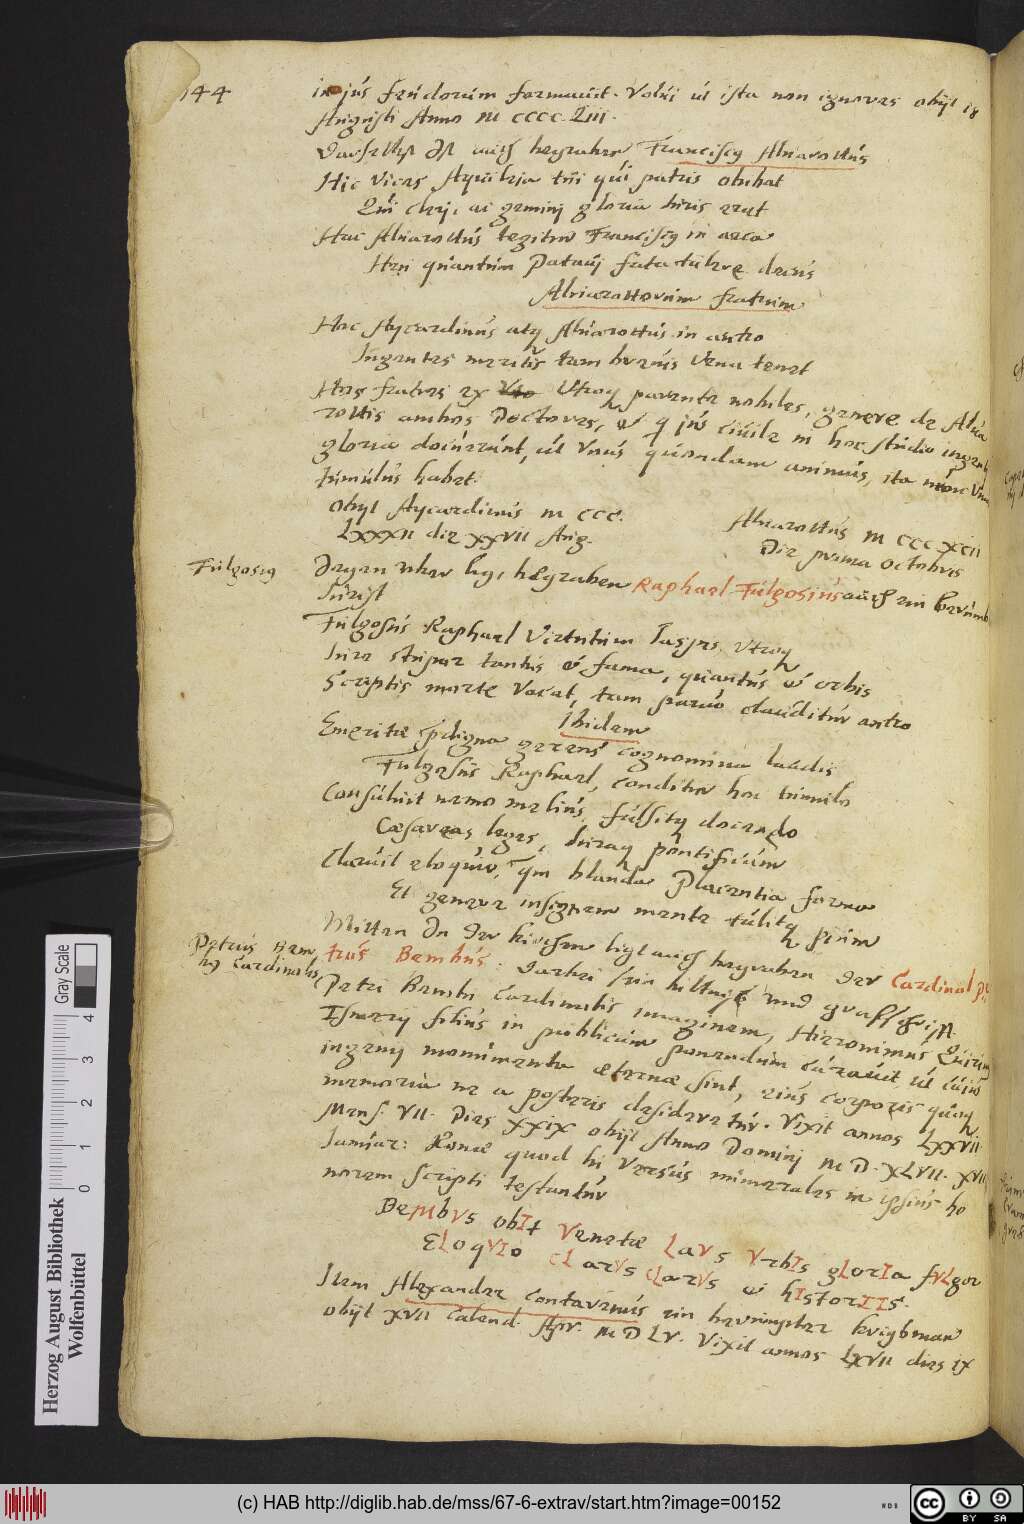 144
in jus feudorum formavit. Volui ut ista non ignores obijt 18
Augusti Anno M CCCC LIII.
Daselbst auch begraben Franciscus Alvarottus
Hic vices Aquilia qui patris obibat
Qui cleri, ac gemini gloria iuris erat
Hac Alvarottus tegitur Franciscus in arca
Heu quantum Patavi fata tulere decus
Alvarottorum fratrum
Hoc Aycardinus atque Alvarottus in antro
Ingentes meritis tam brevis urna tenet
Hos fratres ex Utroque parente nobiles, genere de Alva
rottis ambos Doctores, et jus civile in hoc studio ingenti
gloria docuerunt, ut Unus quondam animus, ita nunc Unus
tumulus habet.
Obijt Aycardinus M CCC.
LXXXII die XXVII Aug.
Alvarottus M CCC XCII
Die prima Octobris
Fulgosius
Degen uber ligt begraben Raphael Fulgosius auch ein berumbt
Jurist
Fulgosus Raphael Virtutum Iaspis Utroque
Jure stupor tantus et fama, quantus et orbis
Scriptis morte vocat, tam parvo clauditur antro
Ibidem
Emeritae digna gerens cognomina laudis
Fulgosus Raphael, conditur hoc tumulo
Consuluit nemo melius, fulsitque docendo
Caesareas leges, Iuraque pontificum
Claruit eloquio, quem blanda Placentia forma
Et genere insignem mente tulitque pium
Petrus Bem
bus Cardinalis
Mitten In der kirchen ligt auch begraben der Cardinal Pe
trus Bembus. Dabei sein biltnis und grabschrift.
Petri Bembi Cardinalis imaginem, Hieronimus Quirinus
Ismerii filius in publicum ponendum curavit ut cujus
ingenij monumenta aeterna sint, eius corporis quoque
memoria ne a posteris desideretur. Vixit annos LXXVII
Mens. VII. Dies XXIX obijt Anno Domini M D. XLVII. XVII
Januar: Romae quod hi Versus numerales in ipsius ho
norem scripti testantur
BeMbVs obIt Venetae LaVs VrbIs gLorIa fVLgor
ELoqVIo CLarVs cLarVs et hIstorIIs.
Item Alexander Contarenus ein berumpter kriegsman
obijt XVII Calend. Apr. M D LV. Vixit annos LXVII dies IX
Herzog August Bibliothek
Wolfenbüttel
Gray Scale
0 1 2 3 4
(c) HAB http://diglib.hab.de/mss/67-6-extrav/start.htm?image=00152
WDB
cc BY SA